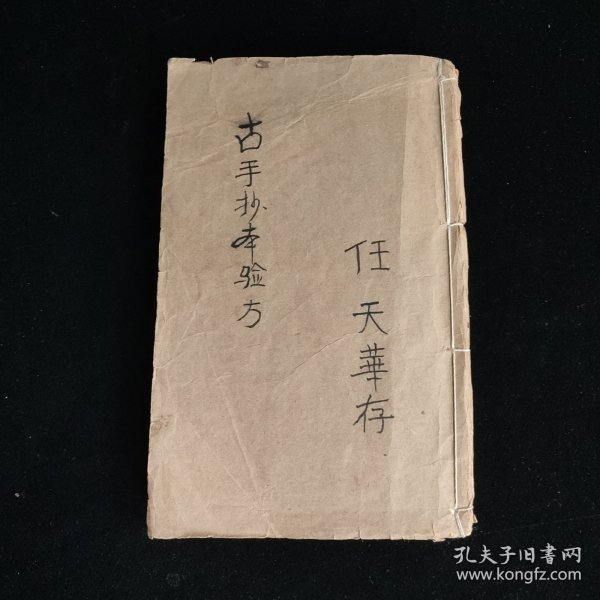 任天華存
古手抄本验方
孔夫子旧書网
www.kongfz.com